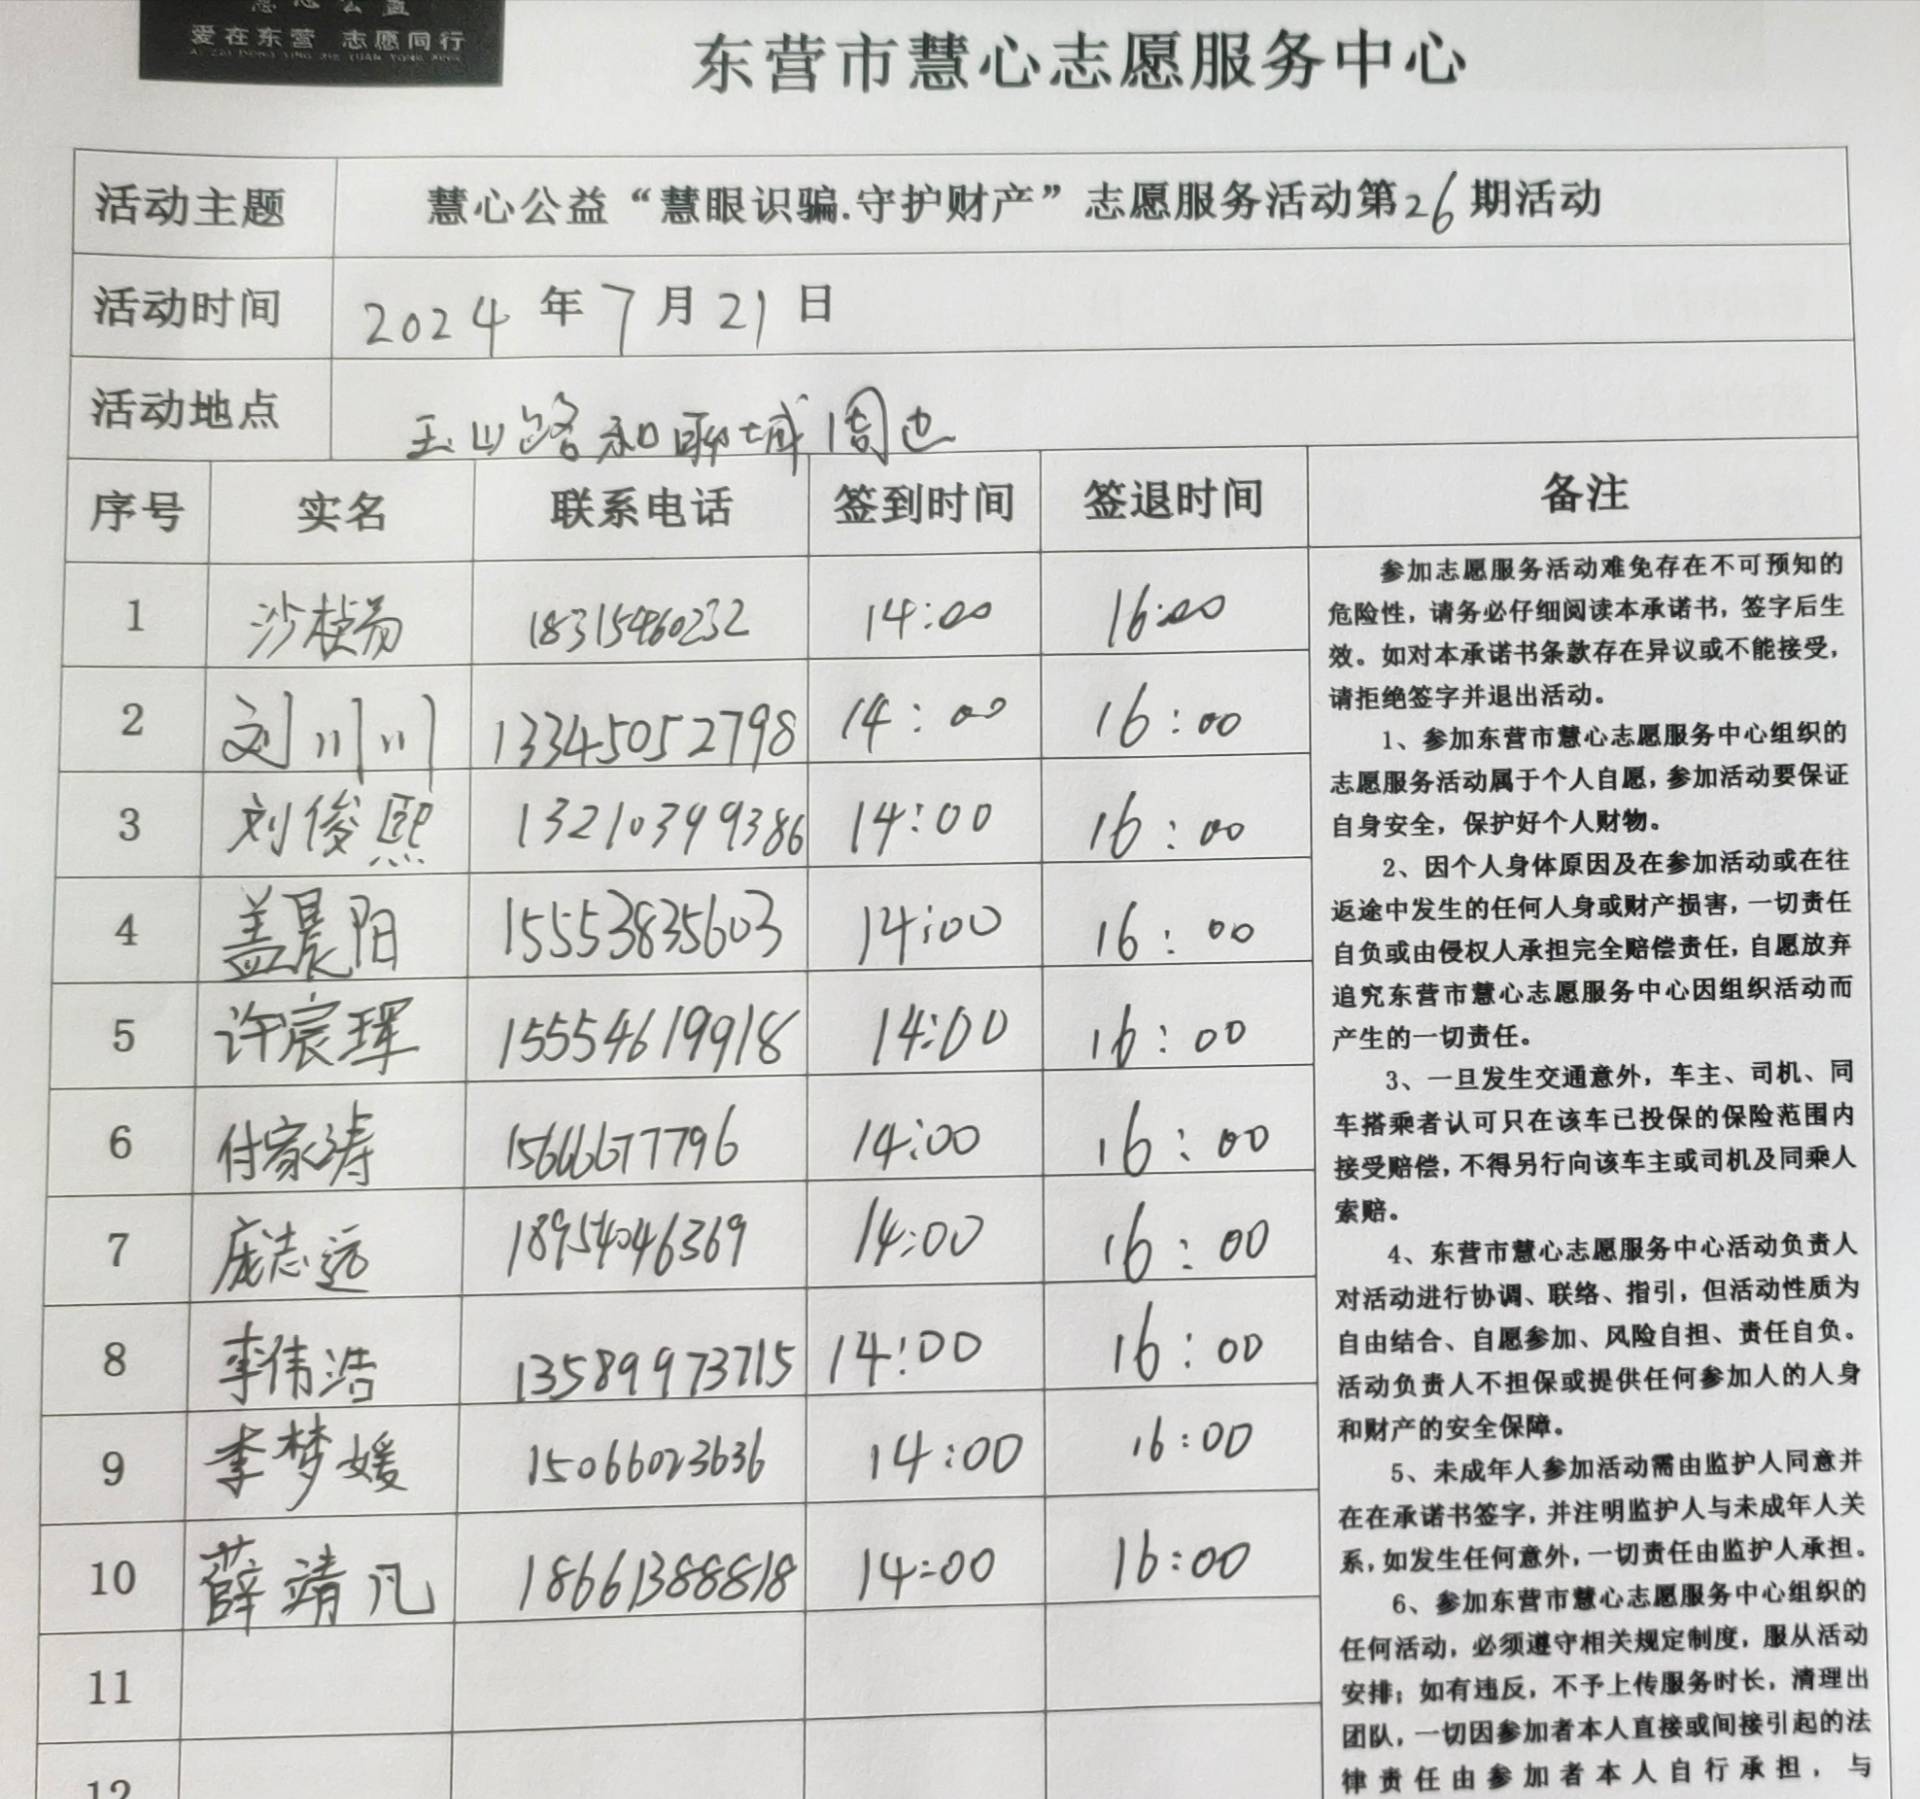 爱在东营 志愿同行
东营市慧心志愿服务中心
活动主题 慧心公益“慧眼识骗.守护财产”志愿服务活动第26期活动
活动时间 2024年7月21日
活动地点 玉山路和聊城周边
序号 实名 联系电话 签到时间 签退时间 备注
1 沙桢易 18315460232 14:00 16:00
2 刘川川 13345052798 14:00 16:00
3 刘俊熙 13210399386 14:00 16:00
4 盖晨阳 15553835603 14:00 16:00
5 许宸珲 15554619918 14:00 16:00
6 付家涛 15666677796 14:00 16:00
7 庞志远 18954046369 14:00 16:00
8 李伟浩 13589973715 14:00 16:00
9 李梦媛 15066023636 14:00 16:00
10 薛靖凡 18661388818 14:00 16:00
11
12
参加志愿服务活动难免存在不可预知的
危险性，请务必仔细阅读本承诺书，签字后生
效。如对本承诺书条款存在异议或不能接受，
请拒绝签字并退出活动。
1、参加东营市慧心志愿服务中心组织的
志愿服务活动属于个人自愿，参加活动要保证
自身安全，保护好个人财物。
2、因个人身体原因及在参加活动或在往
返途中发生的任何人身或财产损害，一切责任
自负或由侵权人承担完全赔偿责任，自愿放弃
追究东营市慧心志愿服务中心因组织活动而
产生的一切责任。
3、一旦发生交通意外，车主、司机、同
车搭乘者认可只在该车已投保的保险范围内
接受赔偿，不得另行向该车主或司机及同乘人
索赔。
4、东营市慧心志愿服务中心活动负责人
对活动进行协调、联络、指引，但活动性质为
自由结合、自愿参加、风险自担、责任自负。
活动负责人不担保或提供任何参加人的人身
和财产的安全保障。
5、未成年人参加活动需由监护人同意并
在在承诺书签字，并注明监护人与未成年人关
系，如发生任何意外，一切责任由监护人承担。
6、参加东营市慧心志愿服务中心组织的
任何活动，必须遵守相关规定制度，服从活动
安排；如有违反，不予上传服务时长，清理出
团队，一切因参加者本人直接或间接引起的法
律责任由参加者本人自行承担，与